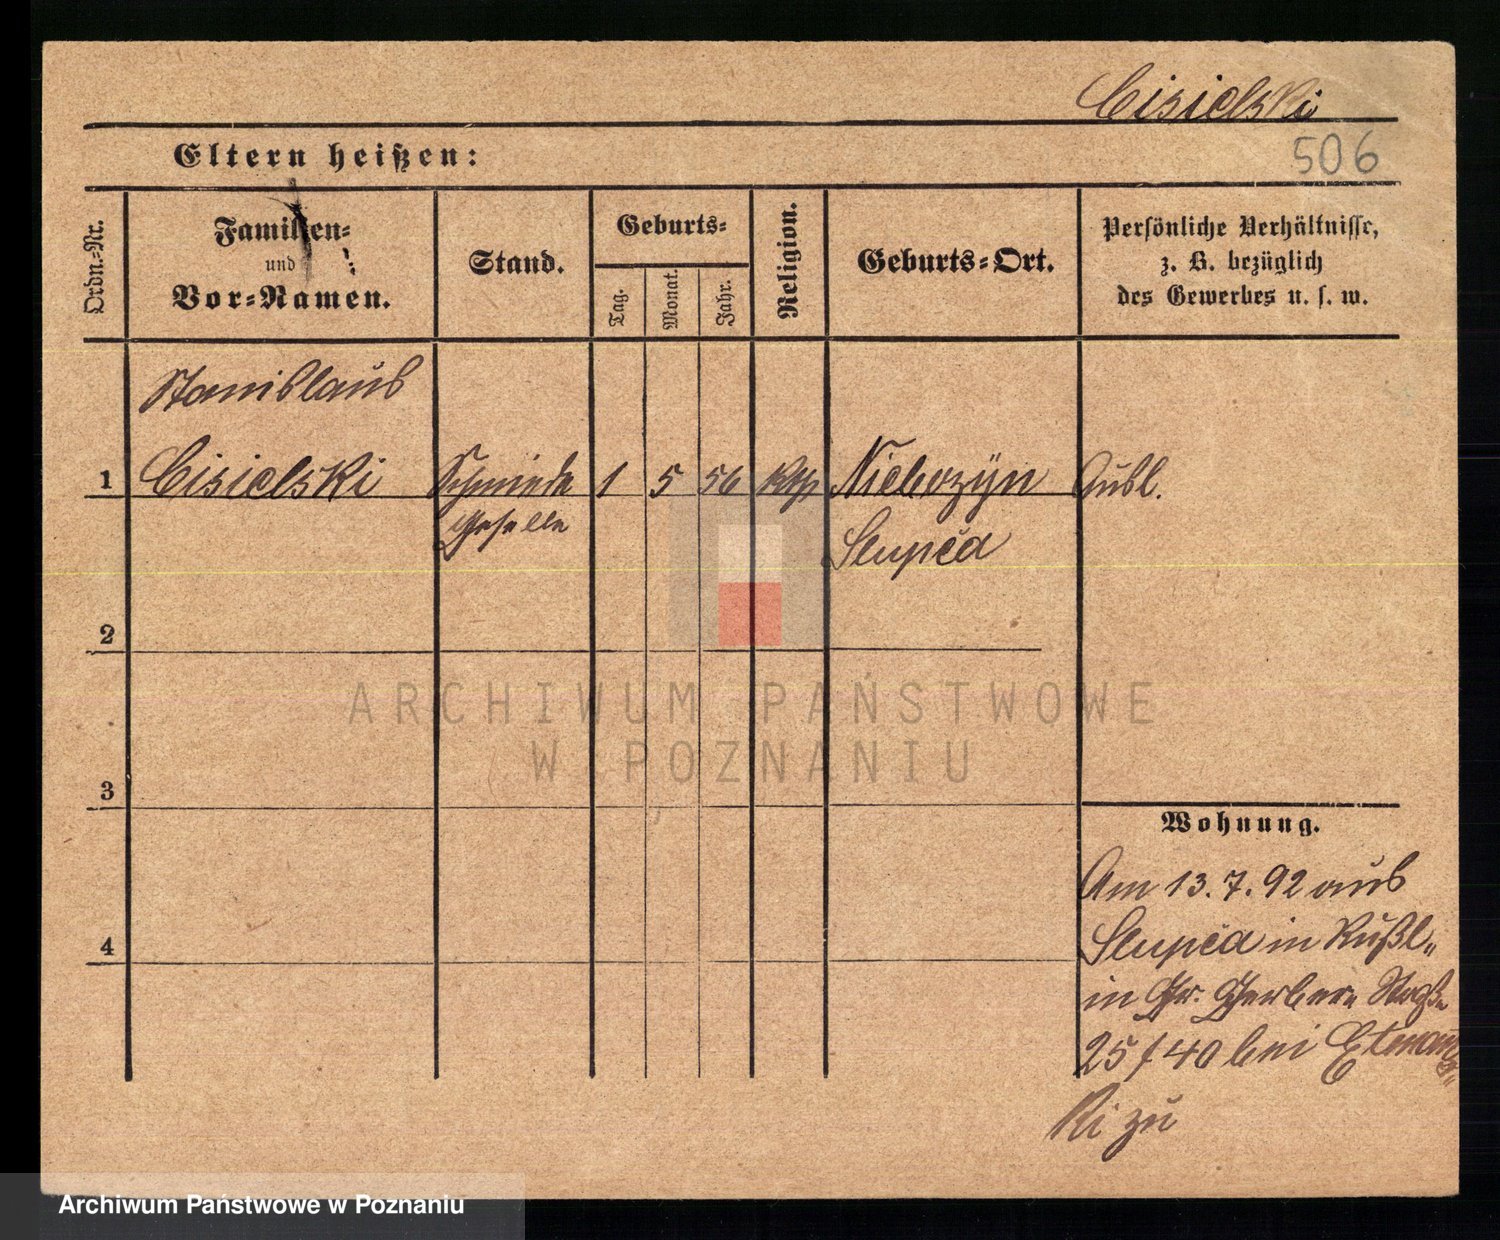 Cisielski
506
Eltern heißen:
Ordn.-Nr.
Familien-
und
Vor-Namen.
Stand.
Geburts-
Tag.
Monat.
Jahr.
Religion.
Geburts-Ort.
Persönliche Verhältnisse,
z. B. bezüglich
des Gewerbes u. s. w.
Stanislaus
1 Cisielski Schmiede 1 5 56 Niebozÿn
Geselle Slupca
2
3
4
Wohnung.
Am 13.7.92 aus
Slupca in Rußl.
in Gr. Gerber Straße
25/40 bei
ki zu
ARCHIWUM PAŃSTWOWE
W POZNANIU
Archiwum Państwowe w Poznaniu